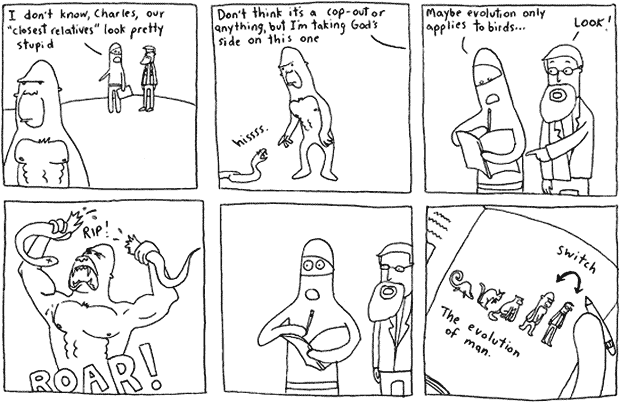 I don't know, Charles, our
"closest relatives" look pretty
stupid
Don't think it's a cop-out or
anything, but I'm taking God's
side on this one
hissss.
Maybe evolution only
applies to birds...
LOOK!
RIP!
ROAR!
switch
The evolution
of man.